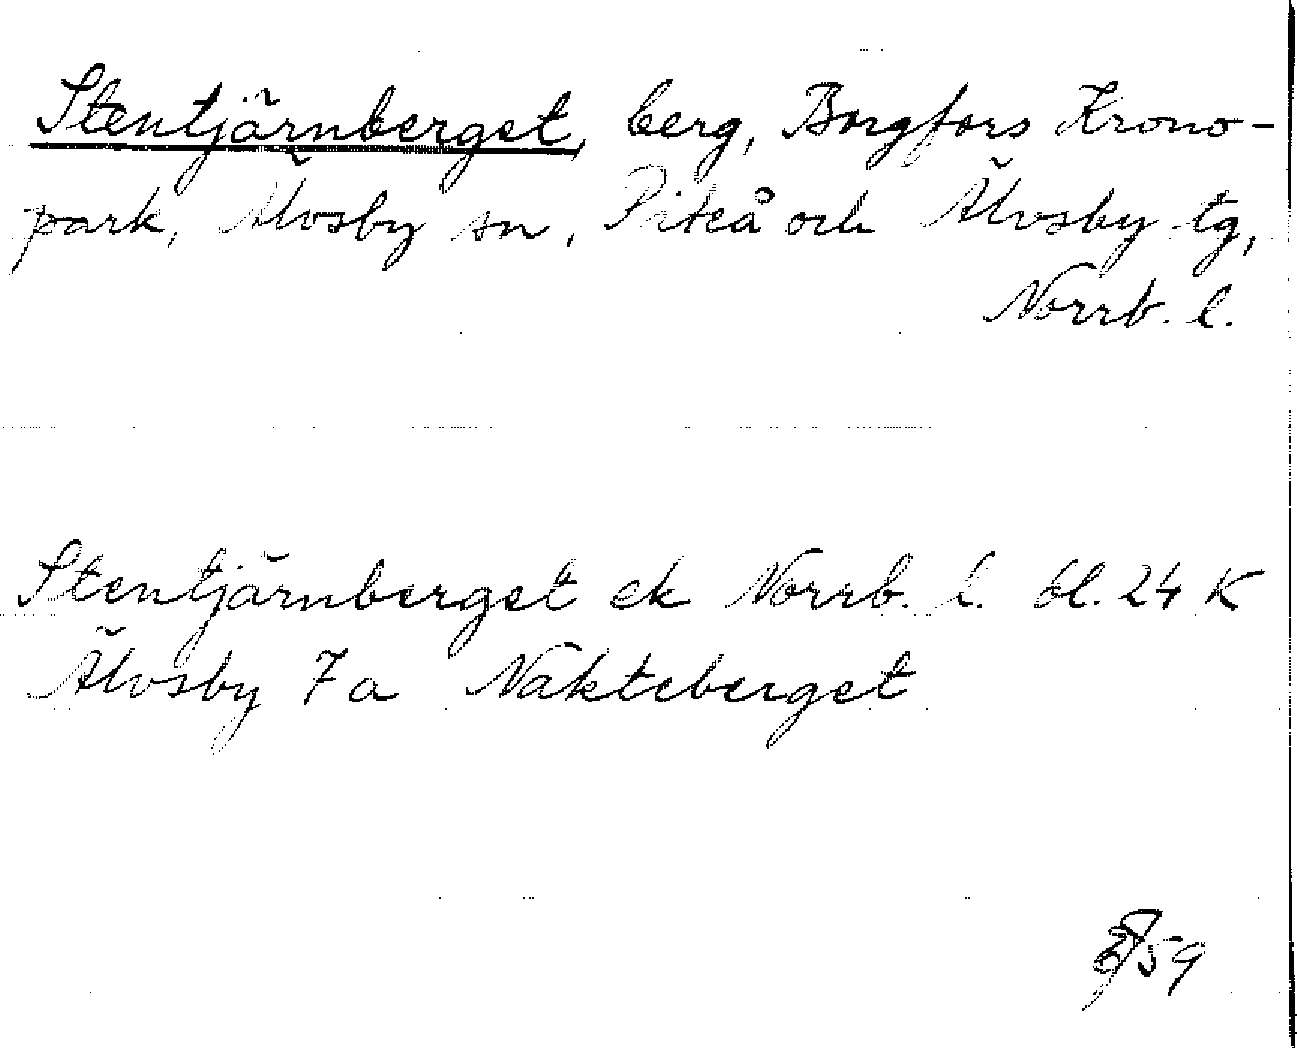 Stentjärnberget, berg, Borgfors Krono-
park, Älvsby sn, Piteå och Älvsby tg,
Norrb. l.
Stentjärnberget ek Norrb. l. bl. 24 K
Älvsby 7a Nakteberget
59